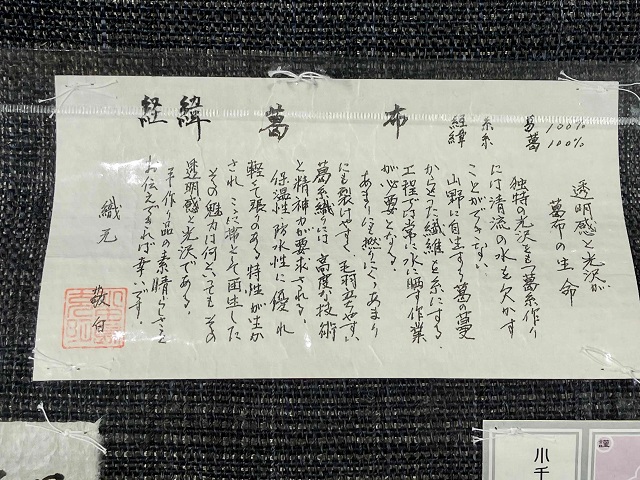 経緯 葛 布
経 糸 葛 100%
緯 糸 葛 100%
透明感と光沢が
葛布の生命
独特の光沢をもつ葛糸作り
には清流の水を欠かす
ことができない
山野に自生する葛の蔓
からとった繊維を糸にする
工程では常に水に晒す作業
が必要となる。
あまりにも撚りにくくあまり
にも裂けやすく、毛羽立ちやすい
葛糸織りには、高度な技術
と精神力が要求される。
保湿性、防水性に優れ
軽くて張のある特性が生か
され、ここに帯として再生した
その魅力は何といってもその
透明感と光沢である。
手作り品の素晴しさを
お伝えできれば幸いです。
織元
敬白
小千
謹